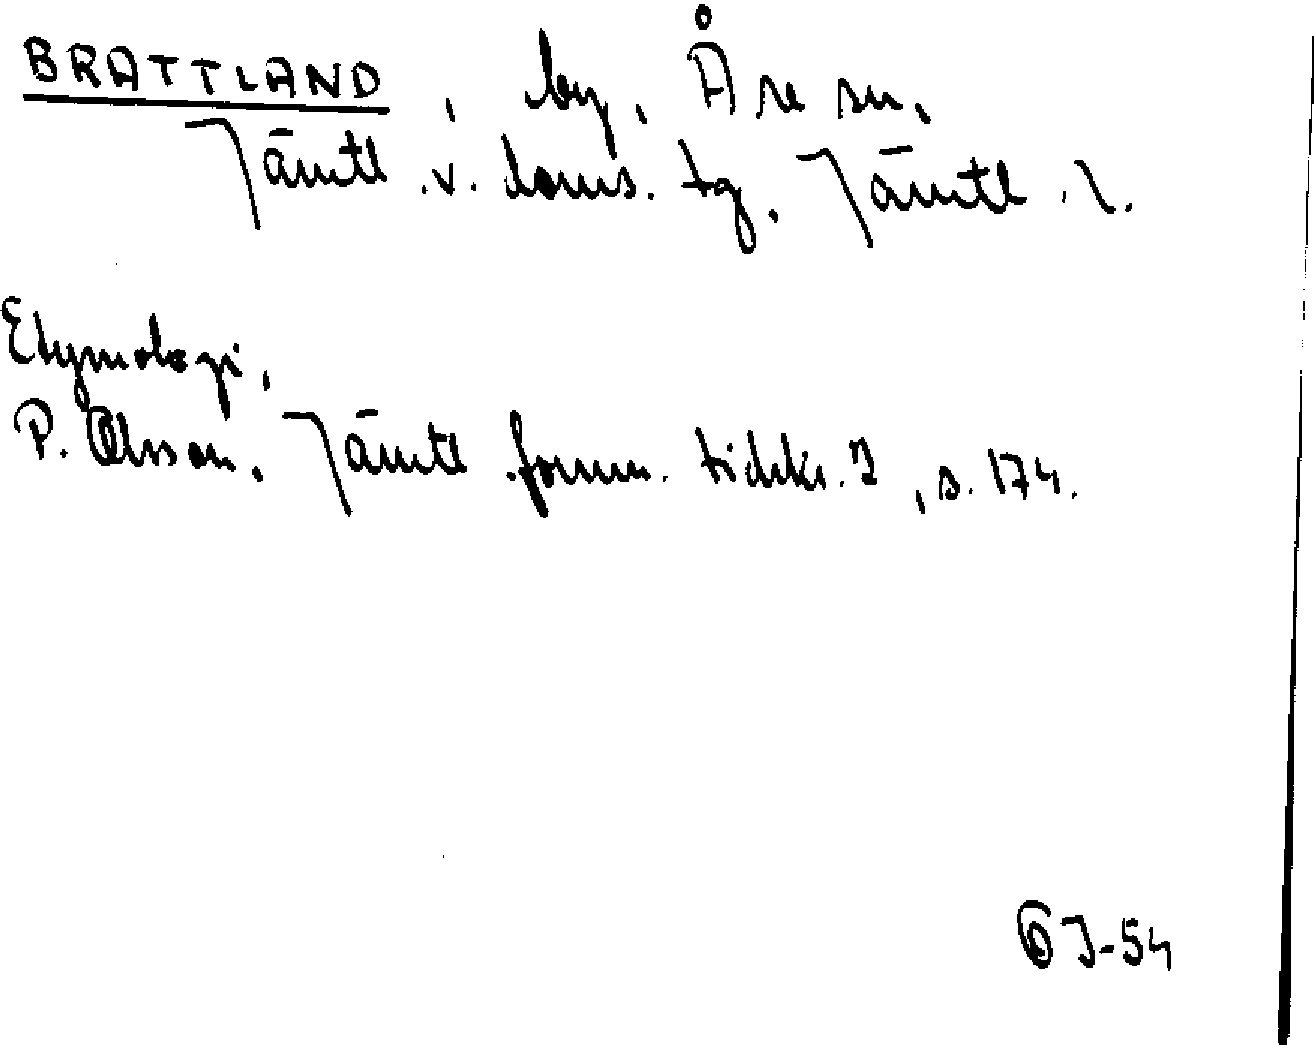 BRATTLAND, by, Åre sn,
Jämtl.v. doms. tg. Jämtl. l.
Etymologi.
P. Olsson. Jämtl. fornm. tidskr. 2, s. 174.
ÖJ-54